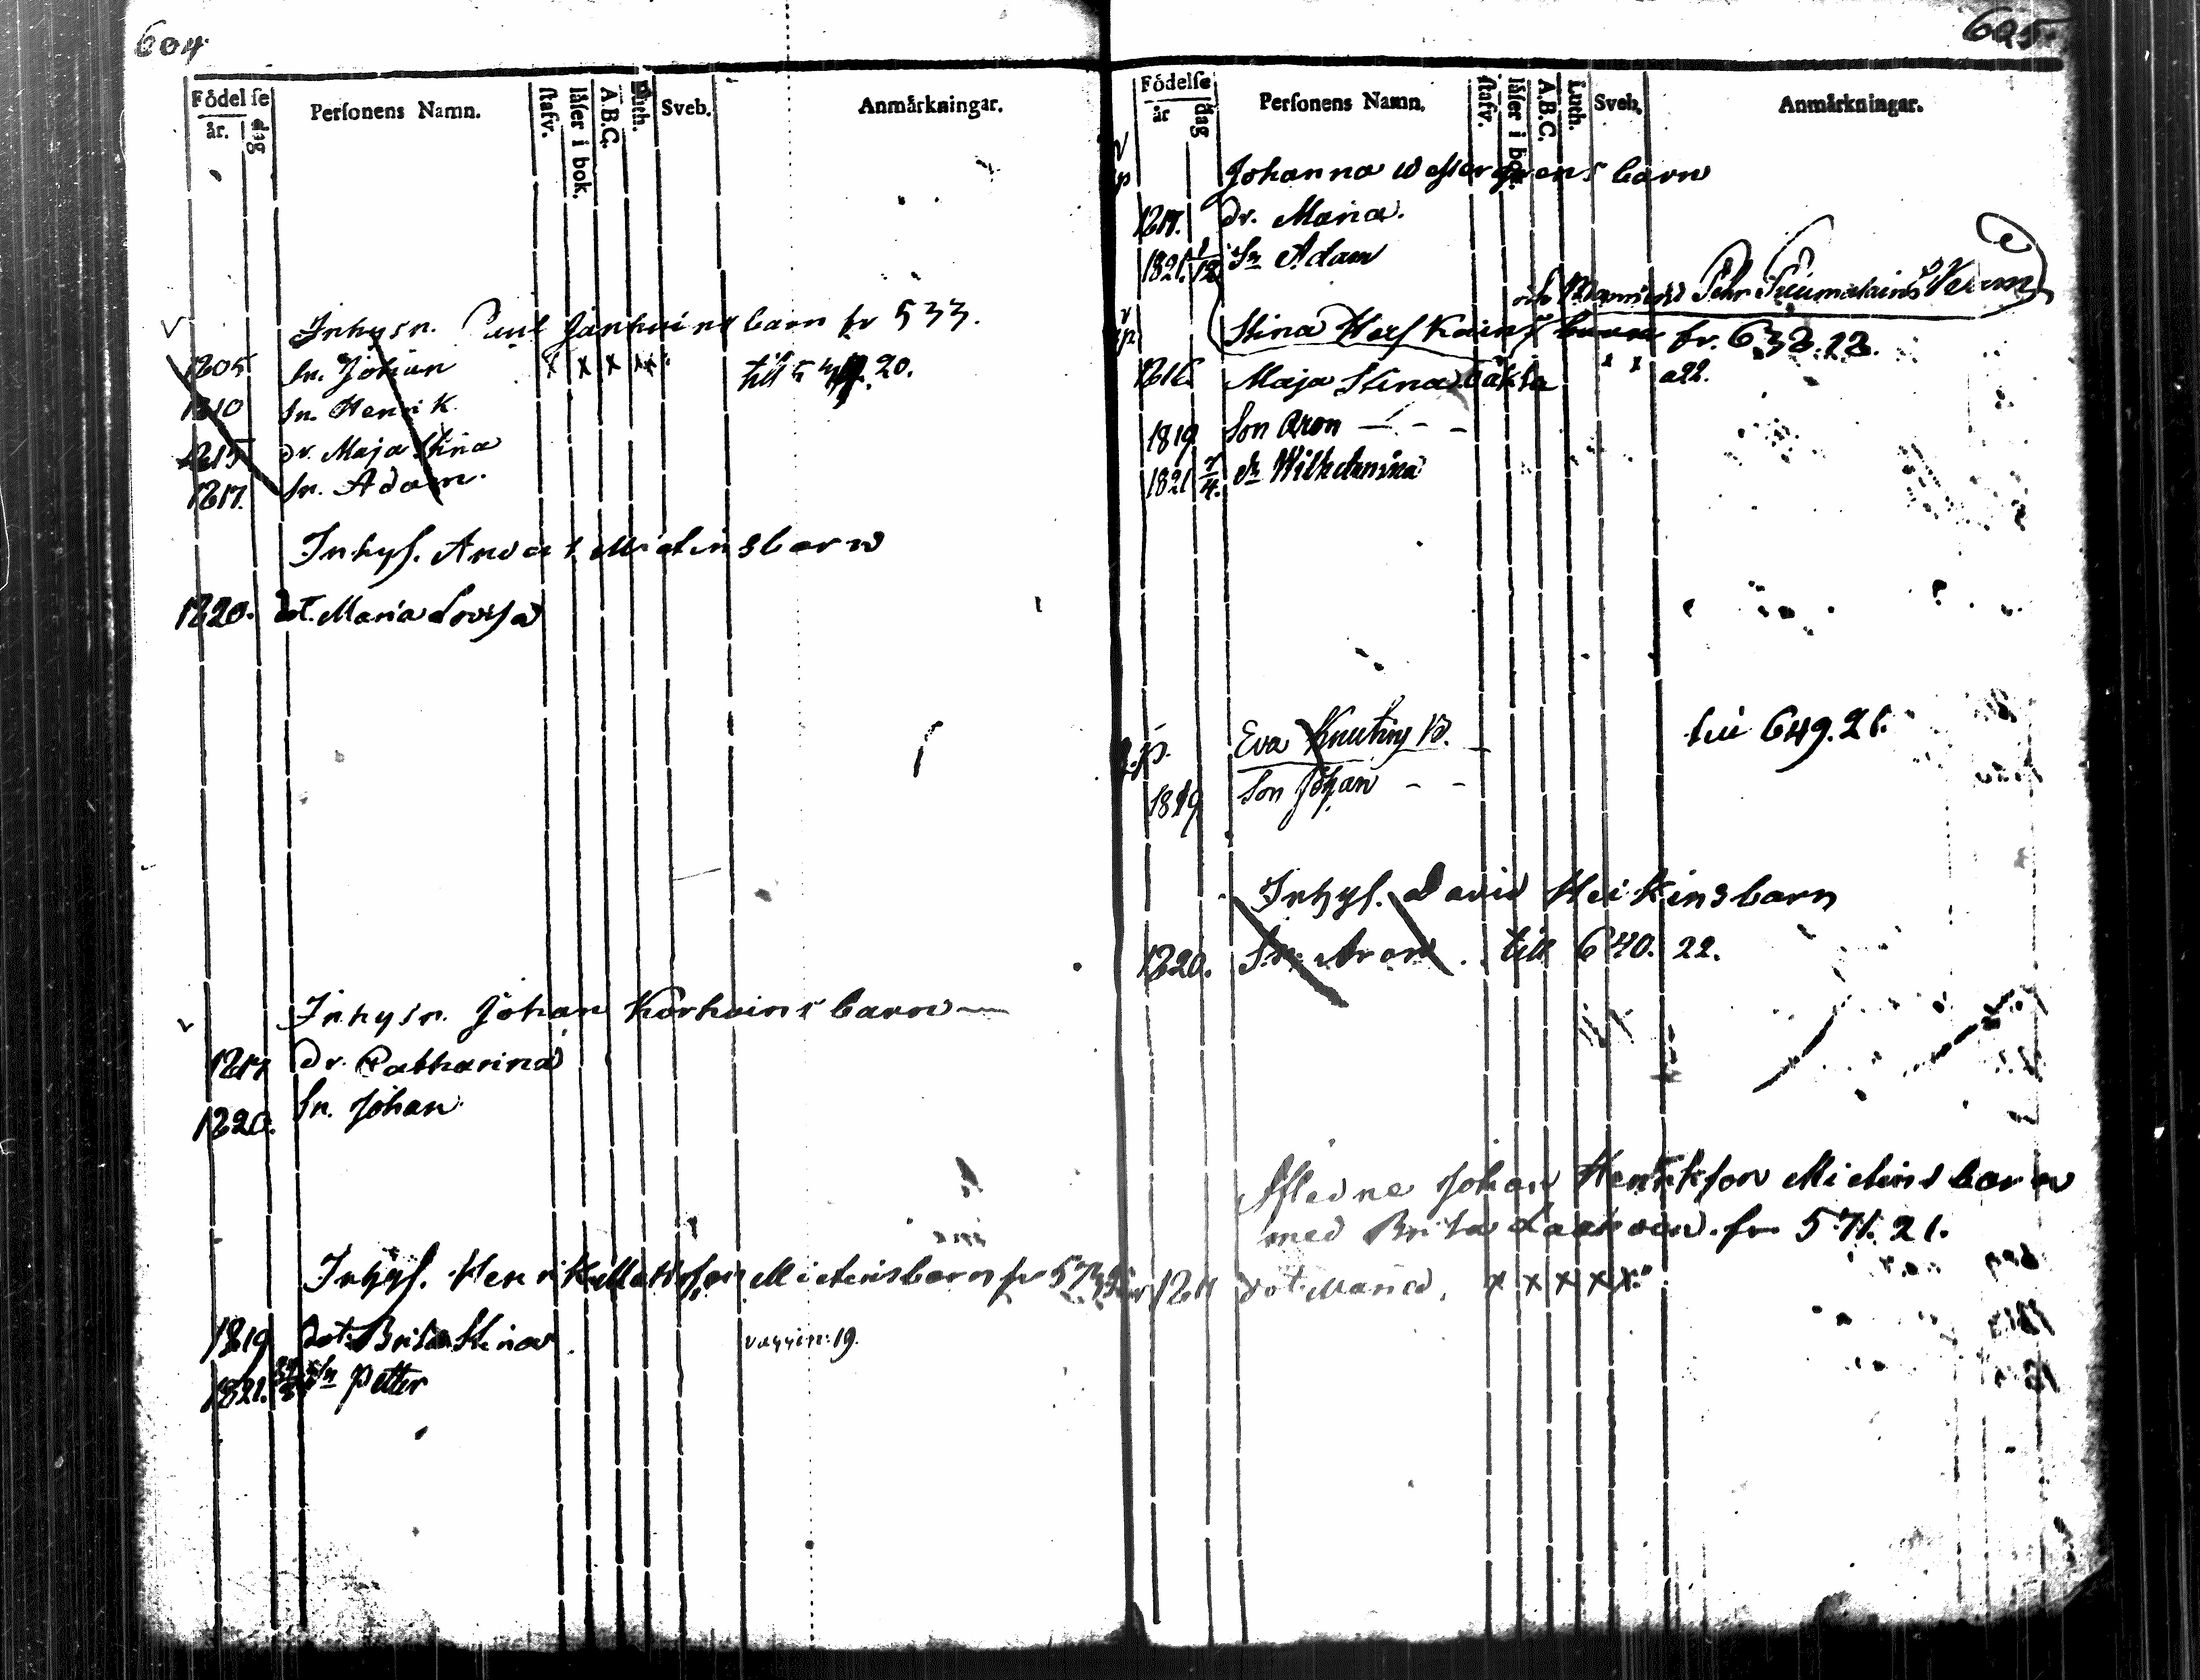 604
Födelse
år. dag
Personens Namn.
stafv.
läser i bok.
A.B.C.
Luth.
Sveb.
Anmärkningar.
Inhysn. Paul barn fr 533.
1805 Sn. Johan x x x x x till 20.
1810 Sn. Henrik
1815 dr. Maja Stina
1817. Sn. Adam.
Inhys. Anders Mietinsbarn
1820. dot. Maria Lovisa
Inhysn. Johan Korhoins barn
1817 Dr. Catharina
1820. Sn. Johan
Inhys. Henrik Mattson Mietinsbarn fr
1819 dot. Brita Stina vaccin: 19.
1821. Sn Petter
605
Födelse
år dag
Personens Namn.
stafv.
läser i bok.
A.B.C.
Luth.
Sveb.
Anmärkningar.
Johanna Westergrens barn
1817. dr. Maria.
1821. 1/12 Sn Adam
och Pehr
Stina barn fr. 638.
1816 Maja Stina oäkta x x a22.
1819 Son Aron
1821 7/4. dr Wilhelmina
Eva till 649.21.
1819 Son Johan
Inhys. David Heikinsbarn
1820. Sn. Aron. till 640. 22.
Afledne Johan Henrikson Mietins barn
med Brita fr 571. 21.
dot. Maria. x x x x x